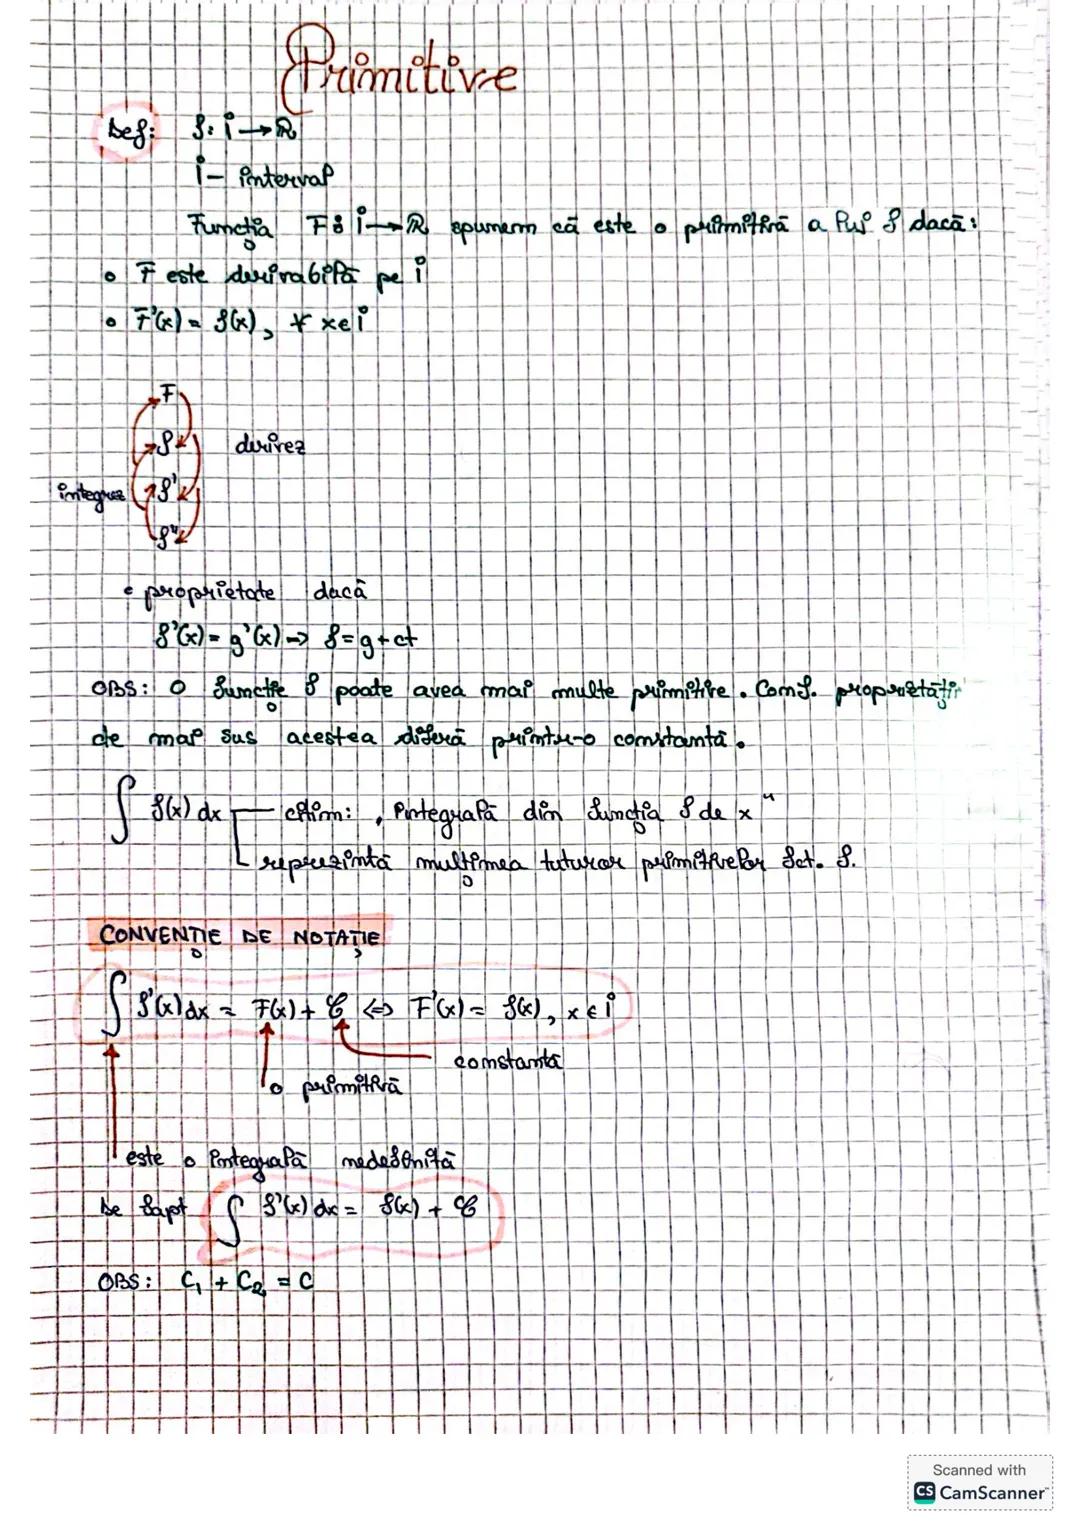 Primitive
Def: f: i → R
i - interval
Funcția F: i → R spunem că este o primitivă a lui f dacă:
• F este derivabilă pe i
• F'(x) = f(x), ∀ x ∈ i
F
f derivez
integrez f'
f''
• proprietate dacă
f'(x) = g'(x) → f = g + ct
OBS: O funcție f poate avea mai multe primitive. Conf. proprietății
de mai sus acestea diferă printr-o constantă.
∫ f(x) dx citim: „integrală din funcția f de x"
reprezintă mulțimea tuturor primitivelor fct. f.
CONVENȚIE DE NOTAȚIE
∫ f'(x) dx = F(x) + C ⇔ F'(x) = f(x), x ∈ i
constantă
o primitivă
este o integrală nedefinită
De fapt ∫ f'(x) dx = f(x) + C
OBS: C₁ + C₂ = C
Scanned with
CS CamScanner